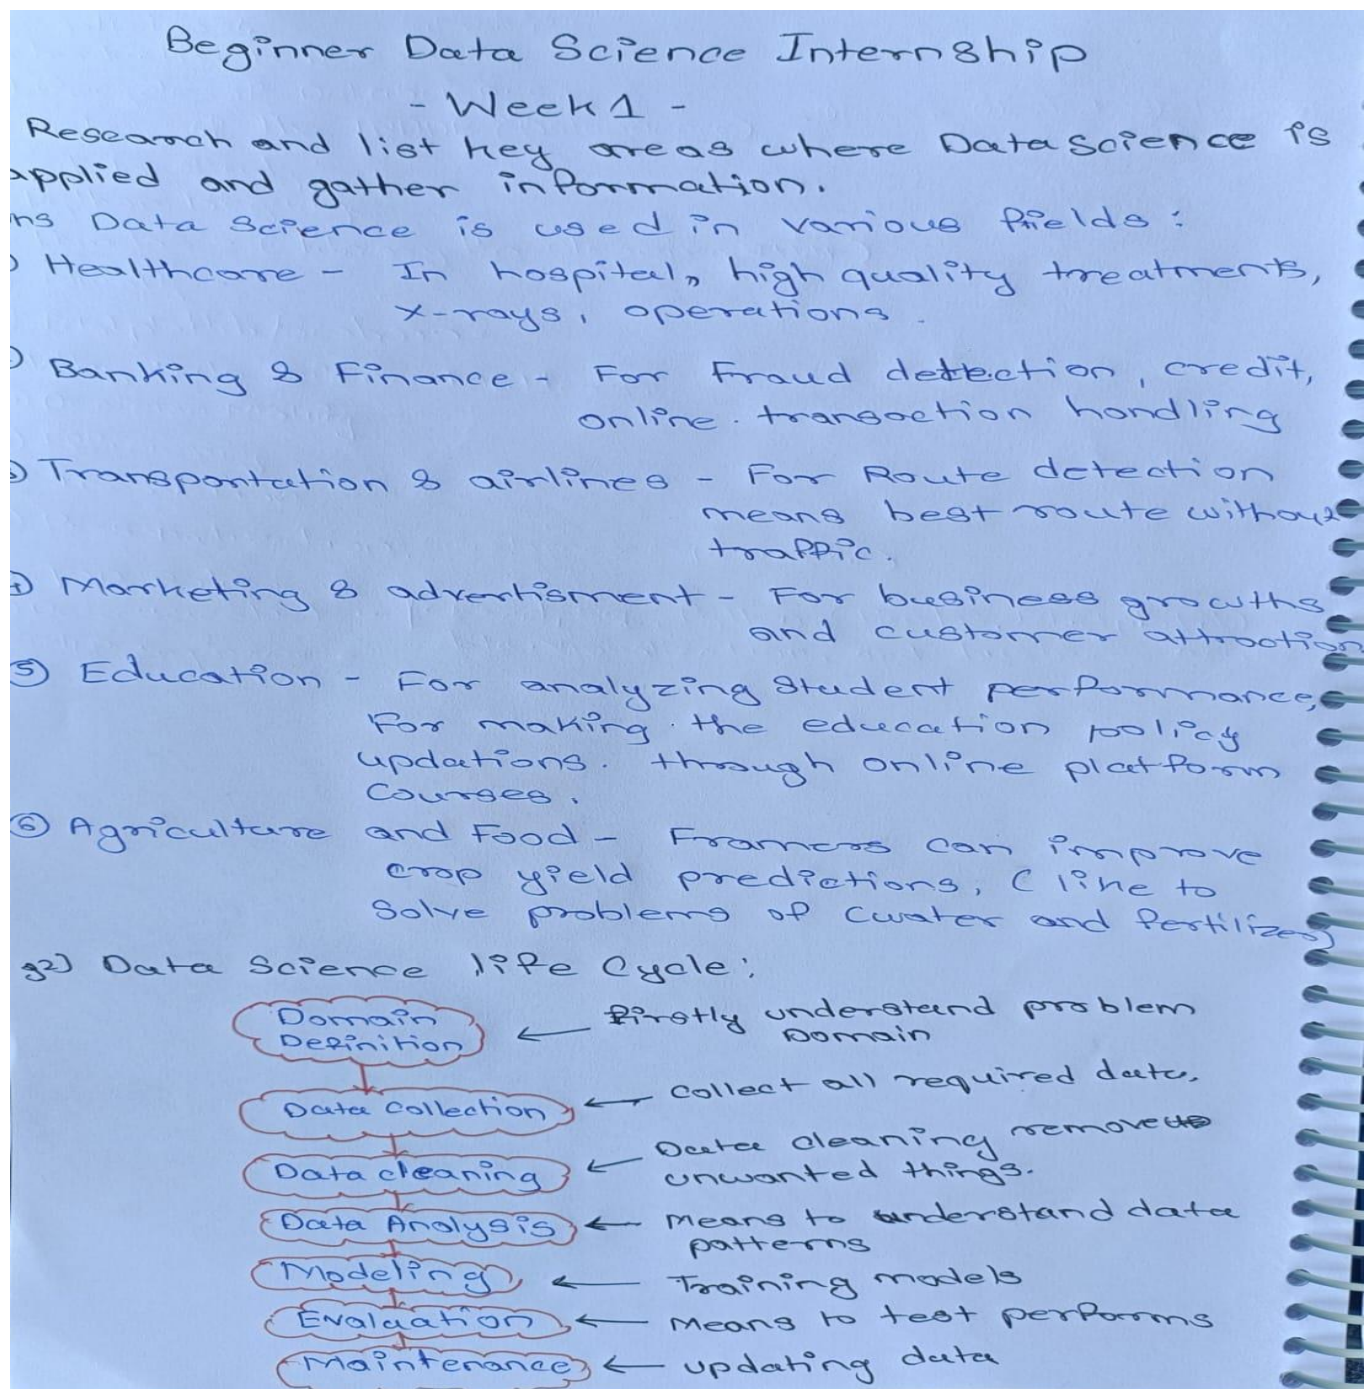 Beginner Data Science Internship
- Week 1 -
Research and list key areas where Data Science is
applied and gather information.
ns Data Science is used in various fields :
) Healthcare - In hospital, high quality treatments,
x-rays, operations.
) Banking & Finance - For Fraud detection, credit,
online transaction handling
) Transportation & airlines - For Route detection
means best route without
traffic.
4) Marketing & advertisment - For business growths
and customer attraction
5) Education - For analyzing student performance,
For making the education policy
updations. through online platform
courses.
6) Agriculture and Food - Framers can improve
crop yield predictions, ( like to
solve problems of water and fertilizer)
Q2) Data Science life Cycle :
Domain
Definition ← firstly understand problem
Domain
Data collection ← collect all required data.
Data cleaning ← Data cleaning remove
unwanted things.
Data Analysis ← means to understand data
patterns
Modeling ← Training models
Evaluation ← means to test performs
Maintenance ← updating data